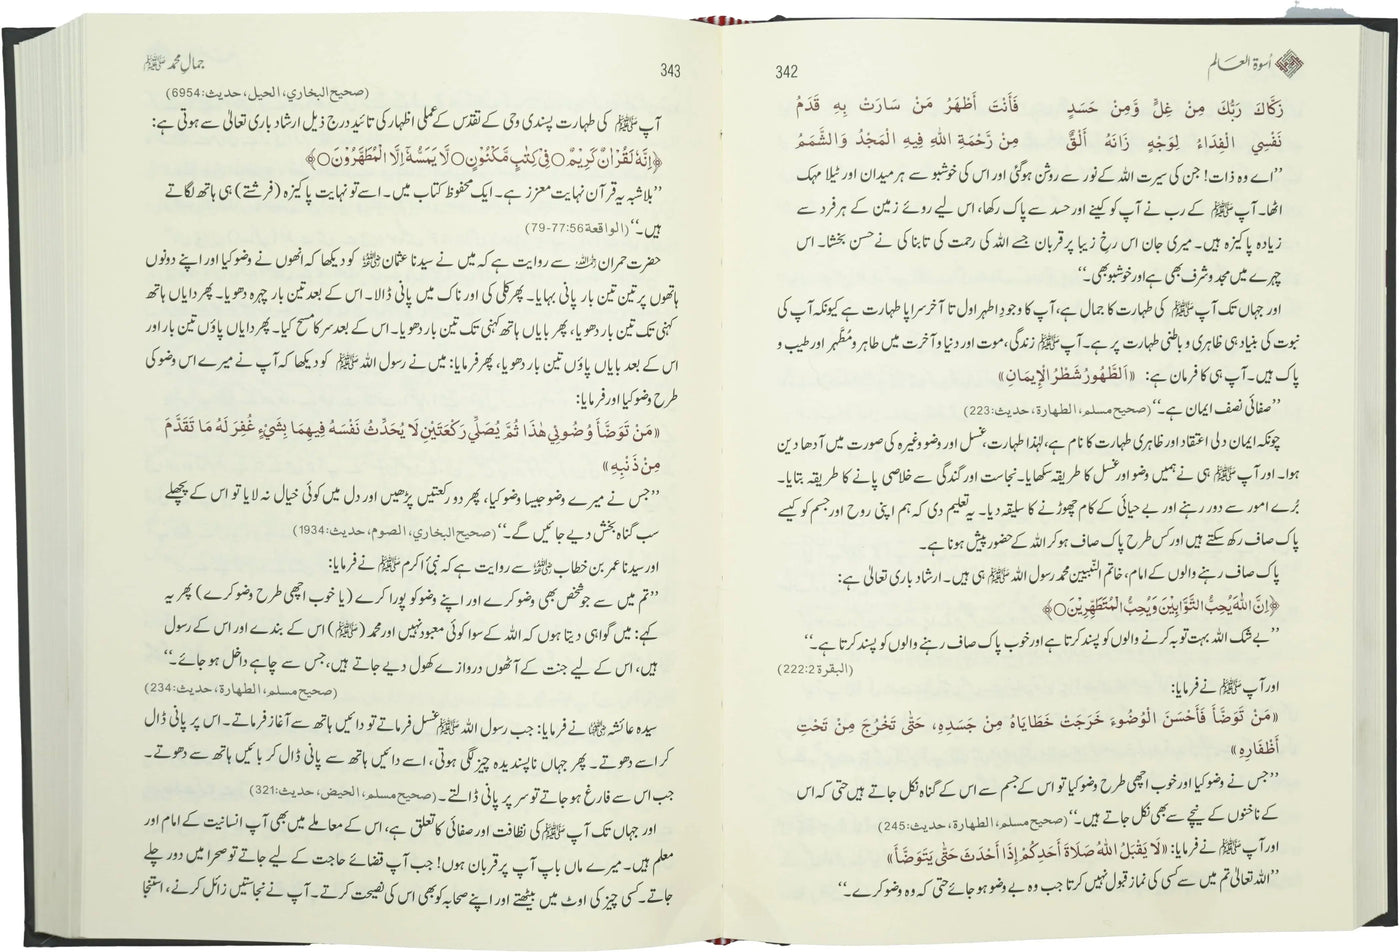 342
اسوۃ العالم
زَكَّاكَ رَبُّكَ مِنْ غِلٍّ وَّمِنْ حَسَدٍ فَأَنْتَ أَظْهَرُ مَنْ سَارَتْ بِهِ قَدَمُ
نَفْسِي الْفِدَاءُ لِوَجْهٍ زَانَهُ أَلَقٌ مِنْ رَّحْمَةِ اللهِ فِيهِ الْمَجْدُ وَالشَّمَمُ
’’اے وہ ذات! جن کی سیرت اللہ کے نور سے روشن ہوگئی اور اس کی خوشبو سے ہر میدان اور ٹیلا مہک
اٹھا۔ آپ ﷺ کے رب نے آپ کو کینے اور حسد سے پاک رکھا، اس لیے روئے زمین کے ہر فرد سے
زیادہ پاکیزہ ہیں۔ میری جان اس رخ زیبا پر قربان جسے اللہ کی رحمت کی تابناکی نے حسن بخشا۔ اس
چہرے میں مجد و شرف بھی ہے اور خوشبو بھی۔‘‘
اور جہاں تک آپ ﷺ کی طہارت کا جمال ہے، آپ کا وجودِ اطہر اول تا آخر سراپا طہارت ہے کیونکہ آپ کی
نبوت کی بنیاد ہی ظاہری و باطنی طہارت پر ہے۔ آپ ﷺ زندگی، موت اور دنیا و آخرت میں طاہر و مُطَہر اور طیب و
پاک ہیں۔ آپ ہی کا فرمان ہے: «اَلطَّهُورُ شَطْرُ الْإِيمَانِ»
’’صفائی نصف ایمان ہے۔‘‘ (صحيح مسلم، الطهارة، حديث: 223)
چونکہ ایمان دلی اعتقاد اور ظاہری طہارت کا نام ہے، لہٰذا طہارت، غسل اور وضو وغیرہ کی صورت میں آدھا دین
ہوا۔ اور آپ ﷺ ہی نے ہمیں وضو اور غسل کا طریقہ سکھایا۔ نجاست اور گندگی سے خلاصی پانے کا طریقہ بتایا۔
بُرے امور سے دور رہنے اور بے حیائی کے کام چھوڑنے کا سلیقہ دیا۔ یہ تعلیم دی کہ ہم اپنی روح اور جسم کو کیسے
پاک صاف رکھ سکتے ہیں اور کس طرح پاک صاف ہو کر اللہ کے حضور پیش ہونا ہے۔
پاک صاف رہنے والوں کے امام، خاتم النّبیین محمد رسول اللہ ﷺ ہی ہیں۔ ارشاد باری تعالیٰ ہے:
﴿إِنَّ اللّٰهَ يُحِبُّ التَّوَّابِيْنَ وَيُحِبُّ الْمُتَطَهِّرِيْنَ○﴾
’’بے شک اللہ بہت توبہ کرنے والوں کو پسند کرتا ہے اور خوب پاک صاف رہنے والوں کو پسند کرتا ہے۔‘‘
(البقرة 2:222)
اور آپ ﷺ نے فرمایا:
«مَنْ تَوَضَّأَ فَأَحْسَنَ الْوُضُوءَ خَرَجَتْ خَطَايَاهُ مِنْ جَسَدِهِ، حَتّٰى تَخْرُجَ مِنْ تَحْتِ
أَظْفَارِهِ»
’’جس نے وضو کیا اور خوب اچھی طرح وضو کیا تو اس کے جسم سے اس کے گناہ نکل جاتے ہیں حتی کہ اس
کے ناخنوں کے نیچے سے بھی نکل جاتے ہیں۔‘‘ (صحيح مسلم، الطهارة، حديث: 245)
اور آپ ﷺ نے فرمایا: «لَا يَقْبَلُ اللّٰهُ صَلَاةَ أَحَدِكُمْ إِذَا أَحْدَثَ حَتّٰى يَتَوَضَّأَ»
’’اللہ تعالیٰ تم میں سے کسی کی نماز قبول نہیں کرتا جب وہ بے وضو ہو جائے حتی کہ وہ وضو کرے۔‘‘
343
جمالِ محمد ﷺ
(صحيح البخاري، الحيل، حديث: 6954)
آپ ﷺ کی طہارت پسندی وحی کے تقدس کے عملی اظہار کی تائید درج ذیل ارشاد باری تعالیٰ سے ہوتی ہے:
﴿اِنَّهٗ لَقُرْاٰنٌ كَرِيْمٌ○ فِيْ كِتٰبٍ مَّكْنُوْنٍ○ لَّا يَمَسُّهٗٓ اِلَّا الْمُطَهَّرُوْنَ○﴾
’’بلاشبہ یہ قرآن نہایت معزز ہے۔ ایک محفوظ کتاب میں۔ اسے تو نہایت پاکیزہ (فرشتے) ہی ہاتھ لگاتے
ہیں۔‘‘ (الواقعة 56:77-79)
حضرت حمران رحمہ اللہ سے روایت ہے کہ میں نے سیدنا عثمان رضی اللہ عنہ کو دیکھا کہ انھوں نے وضو کیا اور اپنے دونوں
ہاتھوں پر تین تین بار پانی بہایا۔ پھر کلی کی اور ناک میں پانی ڈالا۔ اس کے بعد تین بار چہرہ دھویا۔ پھر دایاں ہاتھ
کہنی تک تین بار دھویا، پھر بایاں ہاتھ کہنی تک تین بار دھویا۔ اس کے بعد سر کا مسح کیا۔ پھر دایاں پاؤں تین بار اور
اس کے بعد بایاں پاؤں تین بار دھویا، پھر فرمایا: میں نے رسول اللہ ﷺ کو دیکھا کہ آپ نے میرے اس وضو کی
طرح وضو کیا اور فرمایا:
«مَنْ تَوَضَّأَ وُضُوئِي هٰذَا ثُمَّ يُصَلِّي رَكْعَتَيْنِ لَا يُحَدِّثُ نَفْسَهُ فِيهِمَا بِشَيْءٍ غُفِرَ لَهُ مَا تَقَدَّمَ
مِنْ ذَنْبِهِ»
’’جس نے میرے وضو جیسا وضو کیا، پھر دو رکعتیں پڑھیں اور دل میں کوئی خیال نہ لایا تو اس کے پچھلے
سب گناہ بخش دیے جائیں گے۔‘‘ (صحيح البخاري، الصوم، حديث: 1934)
اور سیدنا عمر بن خطاب رضی اللہ عنہ سے روایت ہے کہ نبیٔ اکرم ﷺ نے فرمایا:
’’تم میں سے جو شخص بھی وضو کرے اور اپنے وضو کو پورا کرے (یا خوب اچھی طرح وضو کرے) پھر یہ
کہے: میں گواہی دیتا ہوں کہ اللہ کے سوا کوئی معبود نہیں اور محمد (ﷺ) اس کے بندے اور اس کے رسول
ہیں، اس کے لیے جنت کے آٹھوں دروازے کھول دیے جاتے ہیں، جس سے چاہے داخل ہو جائے۔‘‘
(صحيح مسلم، الطهارة، حديث: 234)
سیدہ عائشہ رضی اللہ عنہا نے فرمایا: جب رسول اللہ ﷺ غسل فرماتے تو دائیں ہاتھ سے آغاز فرماتے۔ اس پر پانی ڈال
کر اسے دھوتے۔ پھر جہاں ناپسندیدہ چیز لگی ہوتی، اسے دائیں ہاتھ سے پانی ڈال کر بائیں ہاتھ سے دھوتے۔
جب اس سے فارغ ہو جاتے تو سر پر پانی ڈالتے۔ (صحيح مسلم، الحيض، حديث: 321)
اور جہاں تک آپ ﷺ کی نظافت اور صفائی کا تعلق ہے، اس کے معاملے میں بھی آپ انسانیت کے امام اور
معلم ہیں۔ میرے ماں باپ آپ پر قربان ہوں! جب آپ قضائے حاجت کے لیے جاتے تو صحرا میں دور چلے
جاتے۔ کسی چیز کی اوٹ میں بیٹھتے اور اپنے صحابہ کو بھی اس کی نصیحت کرتے۔ آپ نے نجاستیں زائل کرنے، استنجا